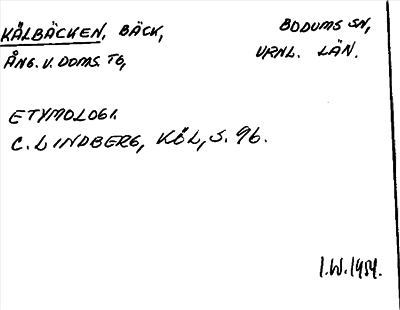 KÄLBÄCKEN, BÄCK, BODUMS SN,
ÅNG. V. DOMS. TG, VRNL. LÄN.
ETYMOLOGI.
C. LINDBERG, KÖL, S. 96.
I.W. 1954.